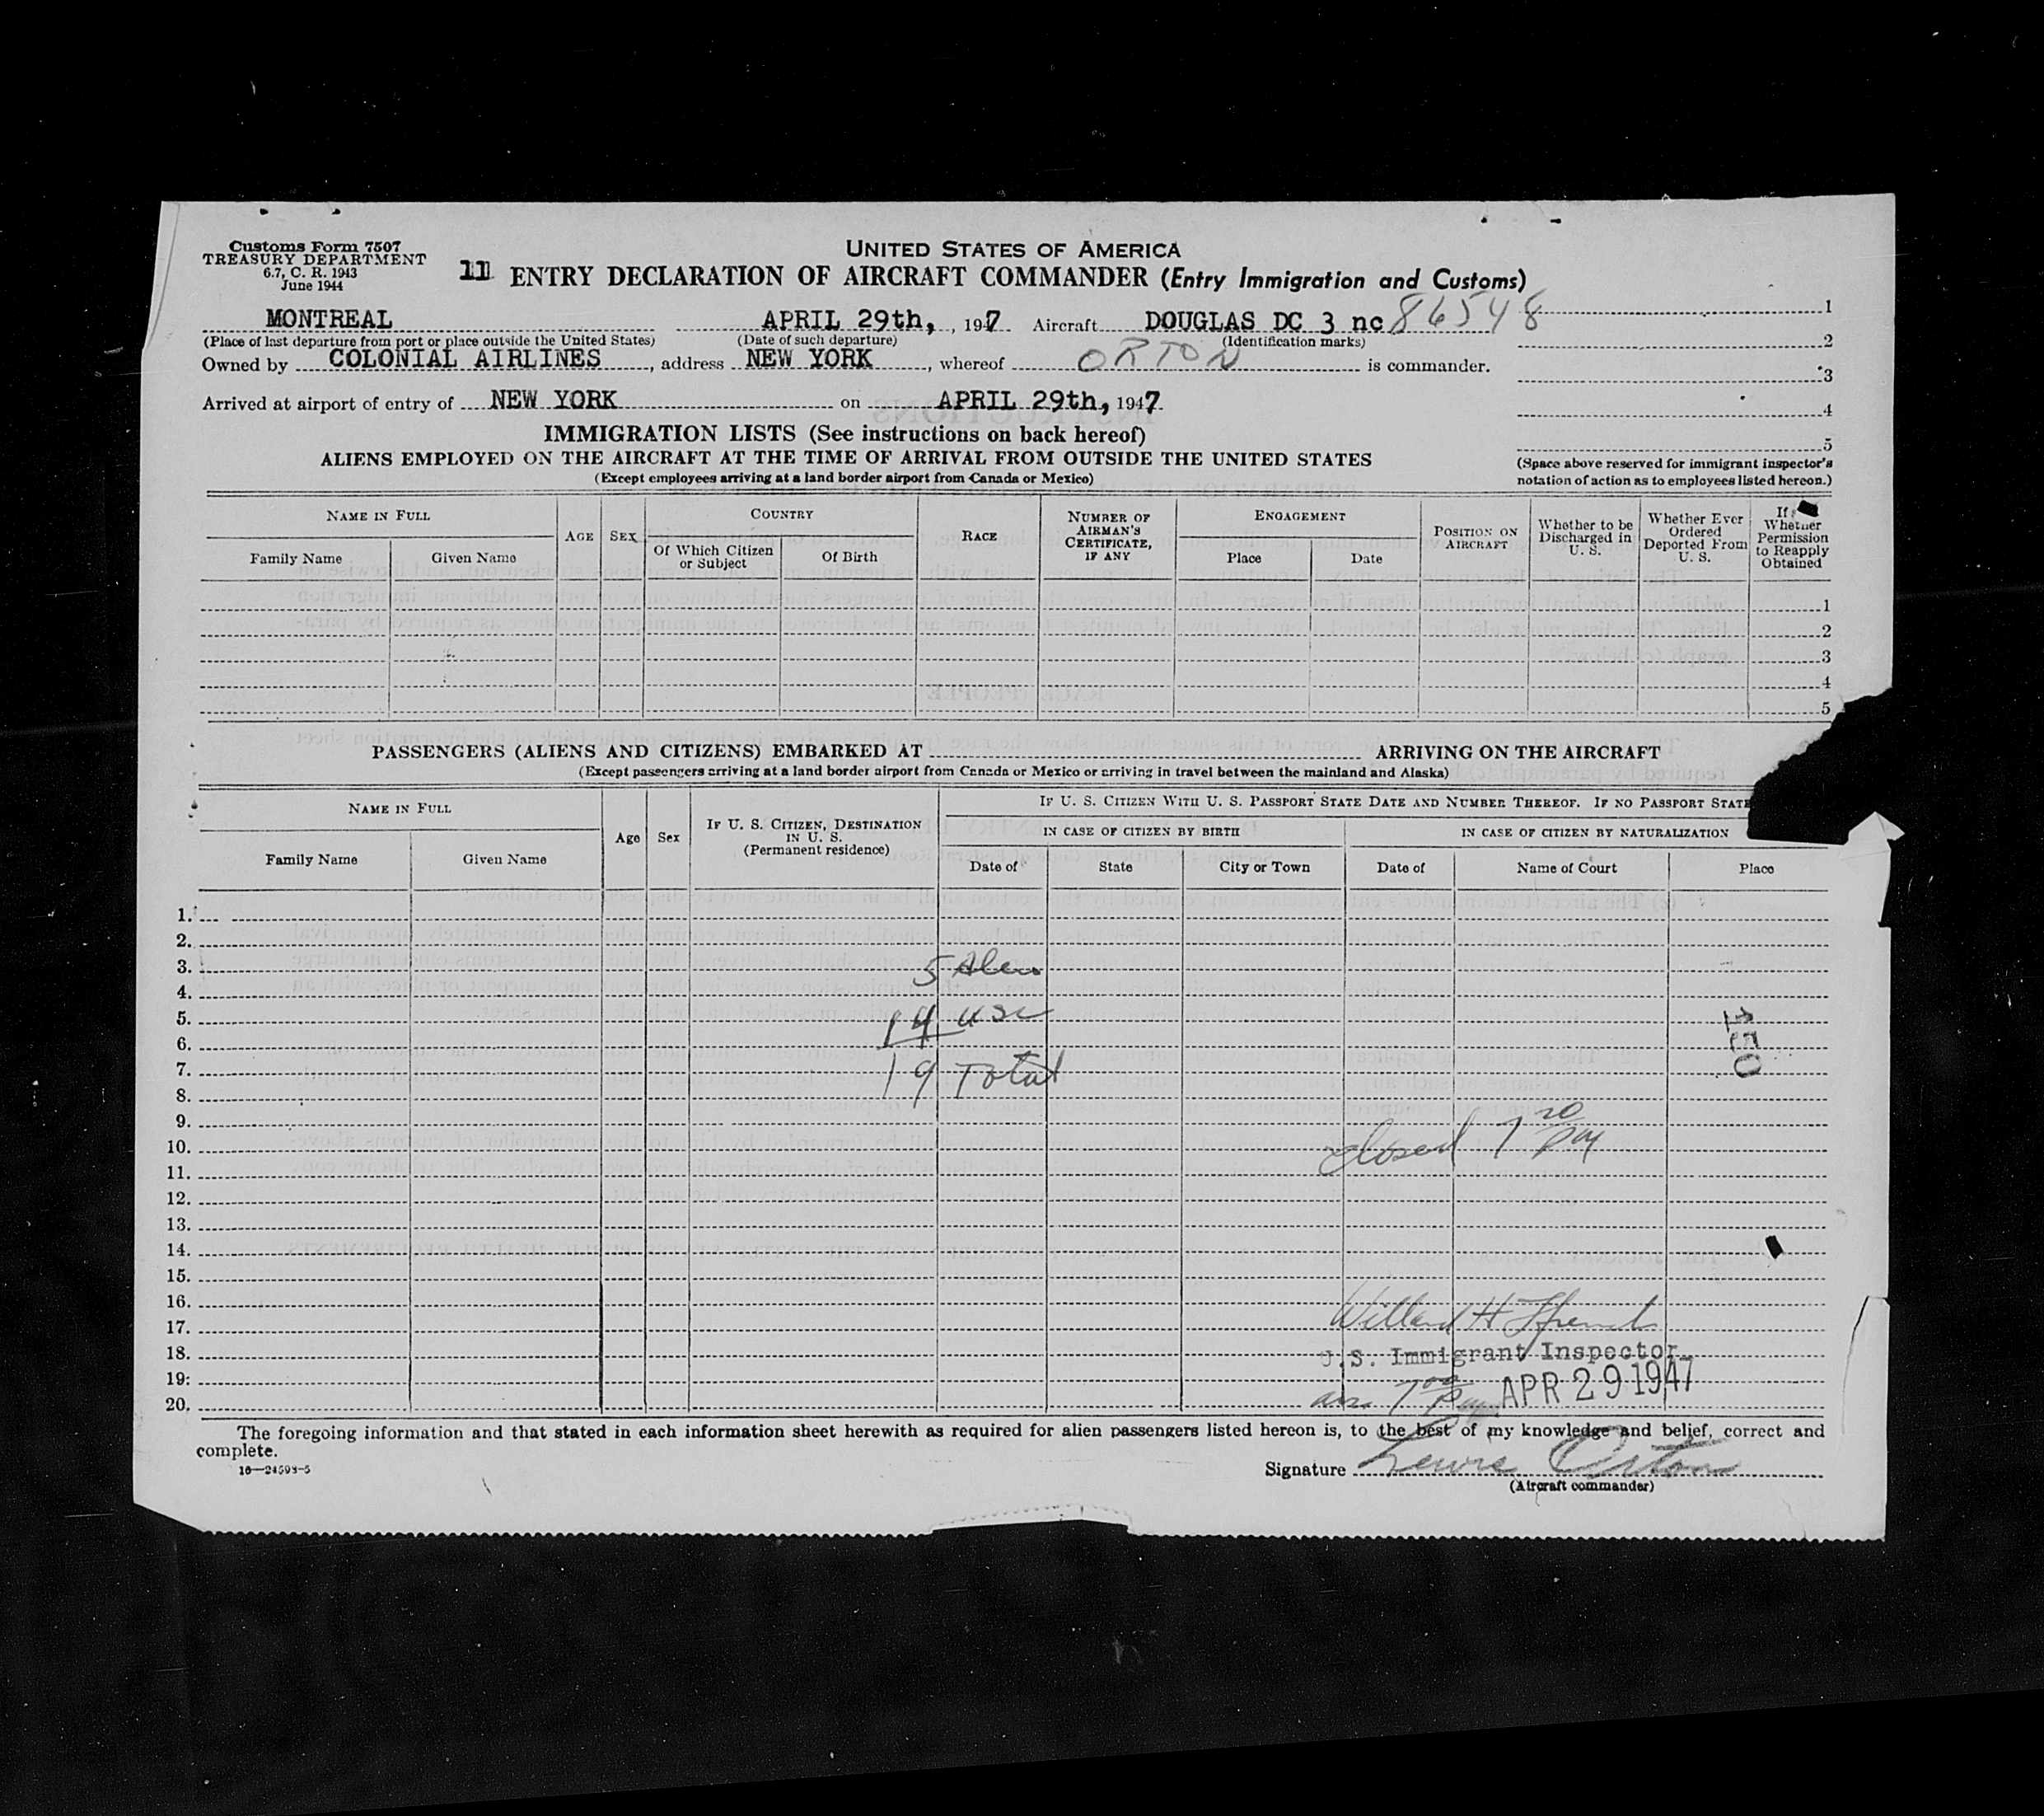 Customs Form 7507
TREASURY DEPARTMENT
6.7, C. R. 1943
June 1944
UNITED STATES OF AMERICA
11 ENTRY DECLARATION OF AIRCRAFT COMMANDER (Entry Immigration and Customs)
MONTREAL APRIL 29th, , 1947 Aircraft DOUGLAS DC 3 nc 86548
(Place of last departure from port or place outside the United States) (Date of such departure) (Identification marks)
Owned by COLONIAL AIRLINES, address NEW YORK, whereof ORTON is commander.
Arrived at airport of entry of NEW YORK on APRIL 29th, 1947
1
2
3
4
5
(Space above reserved for immigrant inspector's
notation of action as to employees listed hereon.)
IMMIGRATION LISTS (See instructions on back hereof)
ALIENS EMPLOYED ON THE AIRCRAFT AT THE TIME OF ARRIVAL FROM OUTSIDE THE UNITED STATES
(Except employees arriving at a land border airport from Canada or Mexico)
NAME IN FULL
Family Name Given Name
AGE
SEX
COUNTRY
Of Which Citizen
or Subject
Of Birth
RACE
NUMBER OF
AIRMAN'S
CERTIFICATE,
IF ANY
ENGAGEMENT
Place Date
POSITION ON
AIRCRAFT
Whether to be
Discharged in
U. S.
Whether Ever
Ordered
Deported From
U. S.
If
Whether
Permission
to Reapply
Obtained
1
2
3
4
5
PASSENGERS (ALIENS AND CITIZENS) EMBARKED AT ARRIVING ON THE AIRCRAFT
(Except passengers arriving at a land border airport from Canada or Mexico or arriving in travel between the mainland and Alaska)
NAME IN FULL
Family Name Given Name
Age
Sex
IF U. S. CITIZEN, DESTINATION
IN U. S.
(Permanent residence)
IF U. S. CITIZEN WITH U. S. PASSPORT STATE DATE AND NUMBER THEREOF. IF NO PASSPORT STATE
IN CASE OF CITIZEN BY BIRTH IN CASE OF CITIZEN BY NATURALIZATION
Date of State City or Town Date of Name of Court Place
1.
2.
3. 5 Alen
4.
5. 14 USC
6.
7. 19 Total
150
8.
9.
10. closed 7 20 pm
11.
12.
13.
14.
15.
16.
17. Willard H
18. U.S. Immigrant Inspector
19. APR 29 1947
20. arr 7 00 pm
The foregoing information and that stated in each information sheet herewith as required for alien passengers listed hereon is, to the best of my knowledge and belief, correct and
complete.
16—24593-5
Signature Lewis Orton
(Aircraft commander)